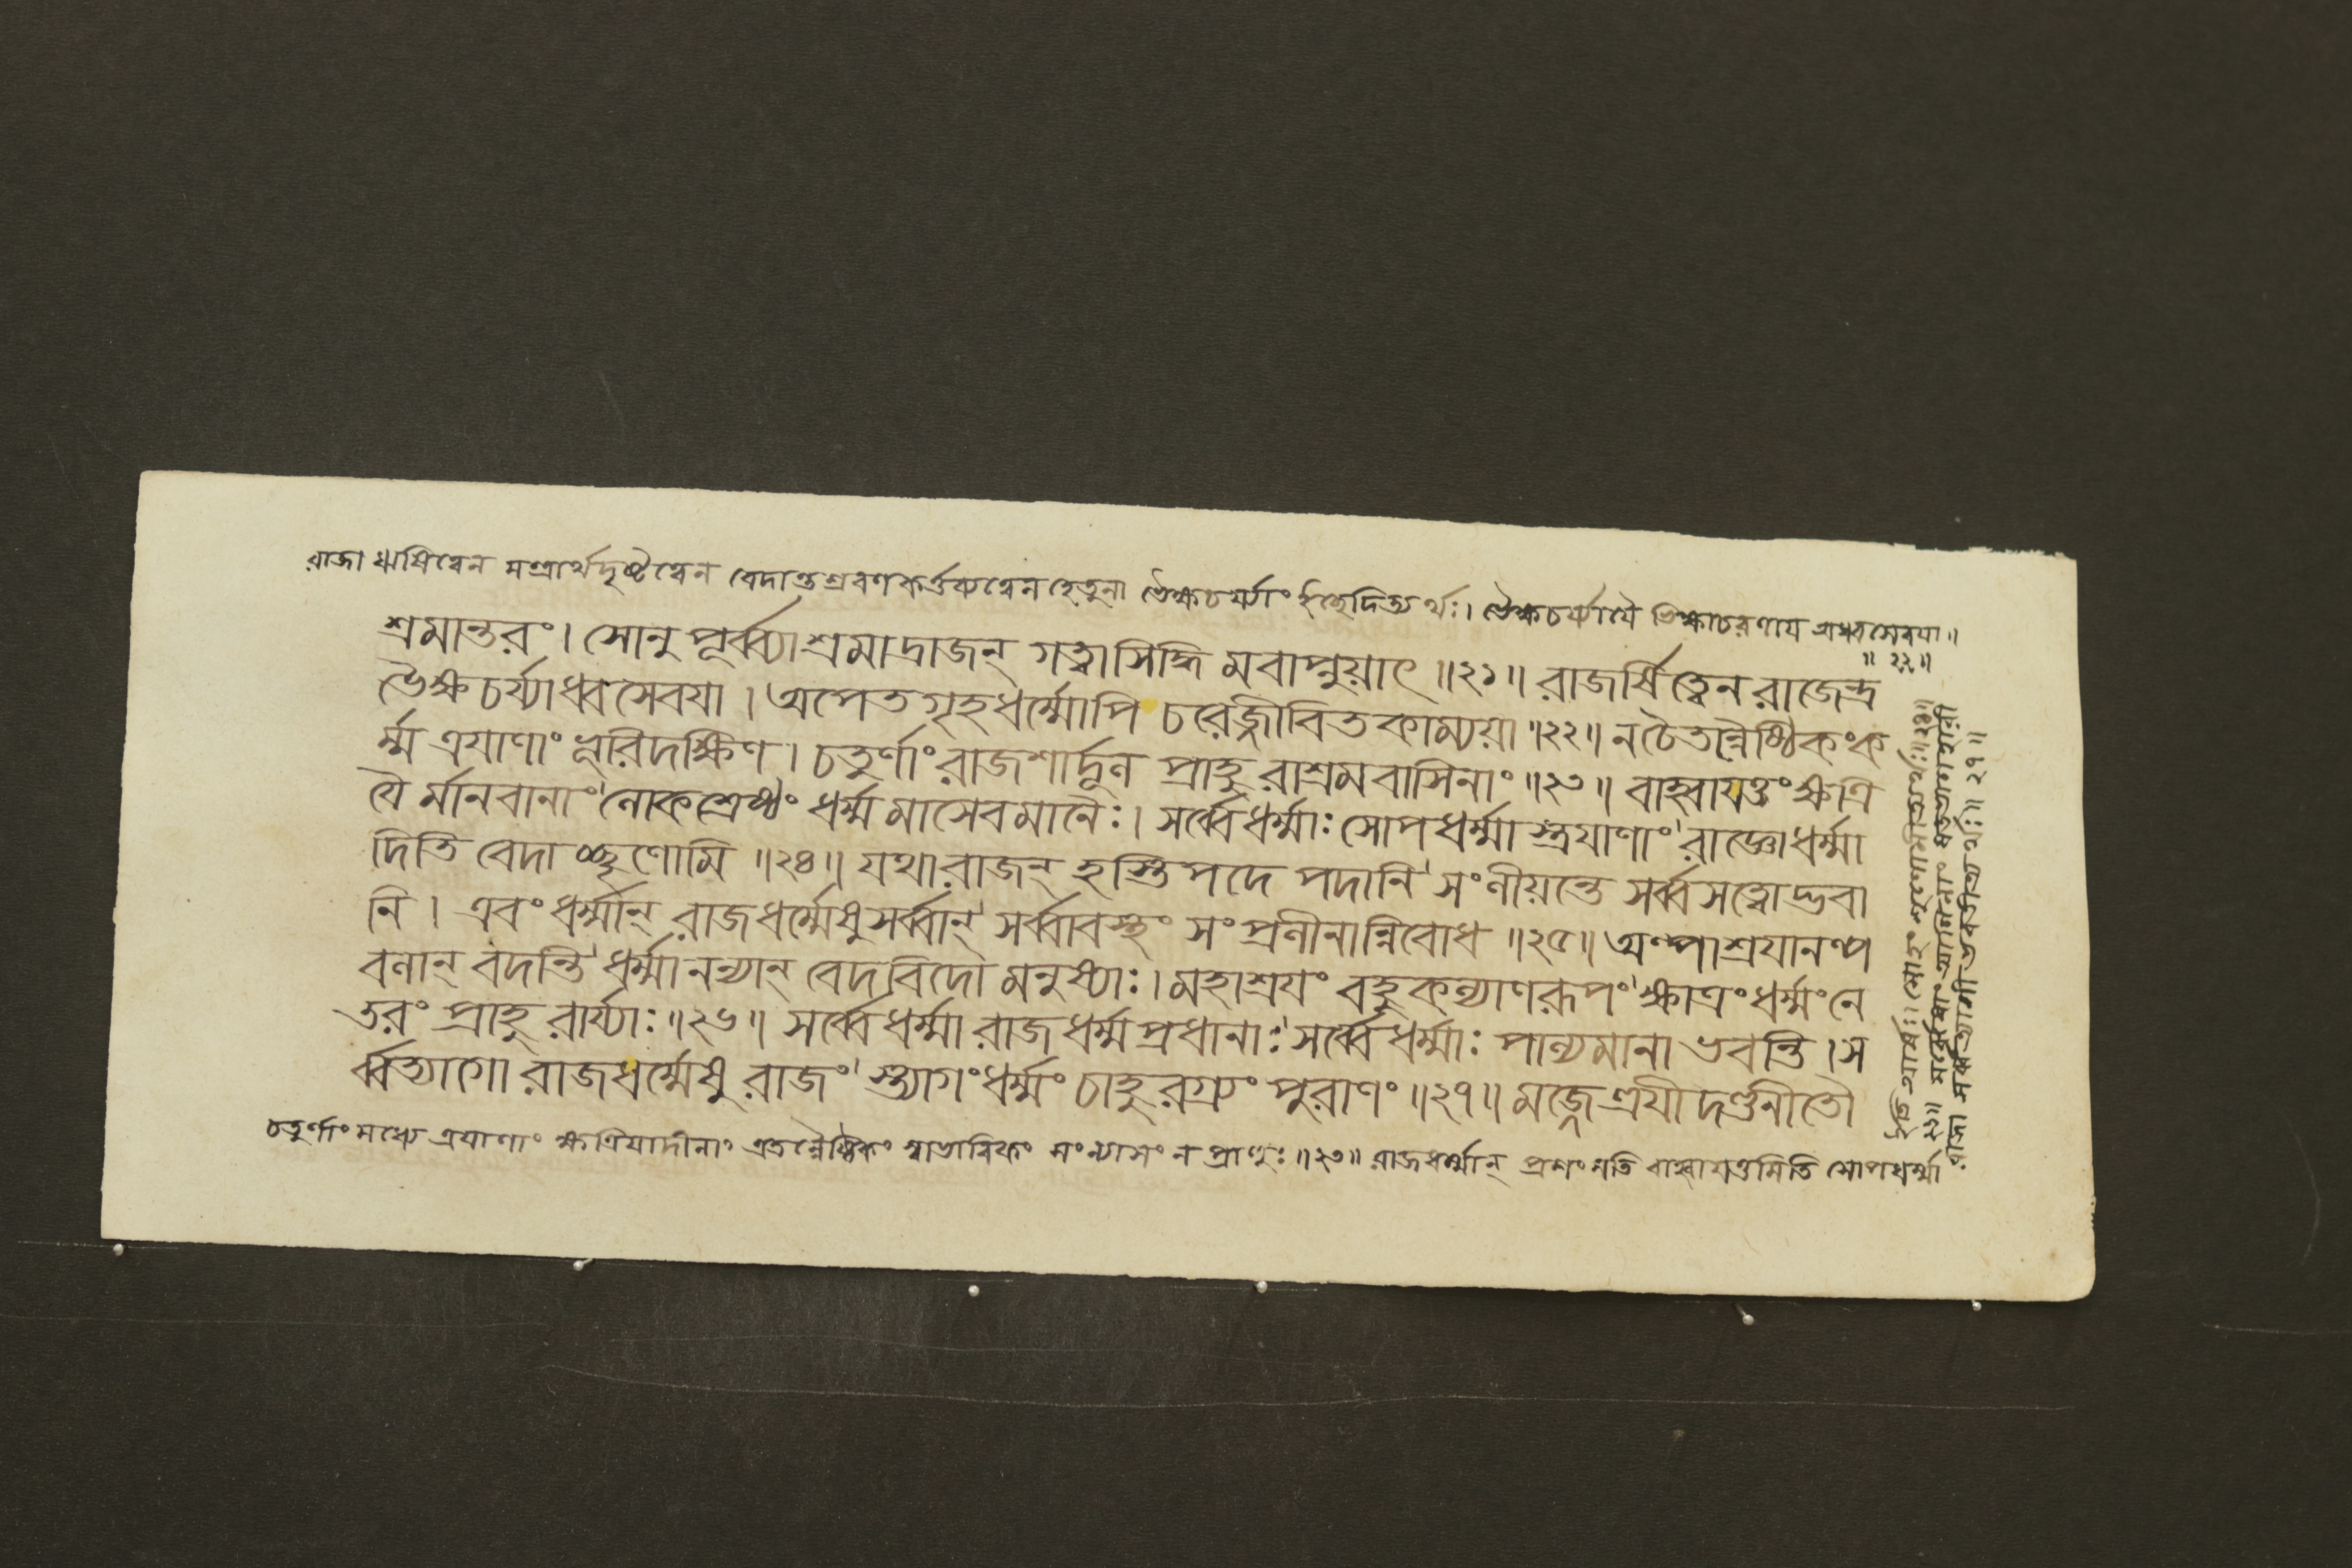 রাজা ঋষিত্বেন মন্ত্রার্থেদৃষ্টত্বেন বেদান্তশ্রবণকর্ত্তৃকত্বেন হেতুনা ভৈক্ষচর্য্যাং ইচ্ছেদিত্যর্থঃ। ভৈক্ষচর্য্যায়ৈ ভিক্ষাচরণায় অধ্বসেবয়া॥
॥ ২২॥
শ্রমান্তরং। সোনুপূর্ব্ব্যাশ্রমাদ্রাজন্ গত্বাসিদ্ধি মবাপ্নুয়াৎ ॥২১॥ রাজর্ষিত্বেন রাজেন্দ্র
ভৈক্ষচর্য্যাধ্বসেবযা। অপেতগৃহধর্ম্মোপি চরেজ্জীবিতকাম্যয়া॥২২॥ নচৈতন্নৈষ্ঠিকংক
র্ম্ম ত্রযাণাং ভূরিদক্ষিণ। চতুর্ণাং রাজশার্দ্দূল প্রাহুরাশ্রমবাসিনাং॥২৩॥ বাহ্বাযত্তং ক্ষত্রি
যৈ র্মানবানাং লোকশ্রেষ্ঠং ধর্ম্মমাসেবমানৈঃ। সর্ব্বেধর্ম্মাঃ সোপধর্ম্মাস্ত্রযাণাং রাজ্ঞোধর্ম্মা
দিতি বেদাচ্ছৃণোমি ॥২৪॥ যথারাজন্ হস্তিপদে পদানি সংলীয়ন্তে সর্ব্বসত্বোদ্ভবা
নি। এবং ধর্ম্মান্ রাজধর্ম্মেষুসর্ব্বান্ সর্ব্বাবস্থং সংপ্রলীনান্নিবোধ ॥২৫॥ অল্পাশ্রযানল্প
বলান্ বদন্তি ধর্ম্মানন্যান্ বেদবিদো মনুষ্যাঃ। মহাশ্রযং বহুকল্যাণরূপং ক্ষাত্রংধর্ম্মংনে
তরং প্রাহুরার্য্যাঃ॥২৬॥ সর্ব্বেধর্ম্মারাজধর্ম্মপ্রধানাঃ সর্ব্বেধর্ম্মাঃ পাল্যমানা ভবন্তি।স
র্ব্বত্যাগো রাজধর্ম্মেষু রাজং স্ত্যাগংধর্ম্মং চাহুরগ্র্যং পুরাণং॥২৭॥ মজ্জেত্ত্রযীদণ্ডনীতৌ
চতুর্ণাং মধ্যে ত্রযাণাং ক্ষত্রিযাদীনাং এতন্নৈষ্ঠিকং স্বাভাবিকং সংন্যাসং ন প্রাহুঃ॥২৩॥ রাজধর্ম্মান্ প্রশংসতি বাহ্বাযত্তমিতি সোপধর্ম্মা